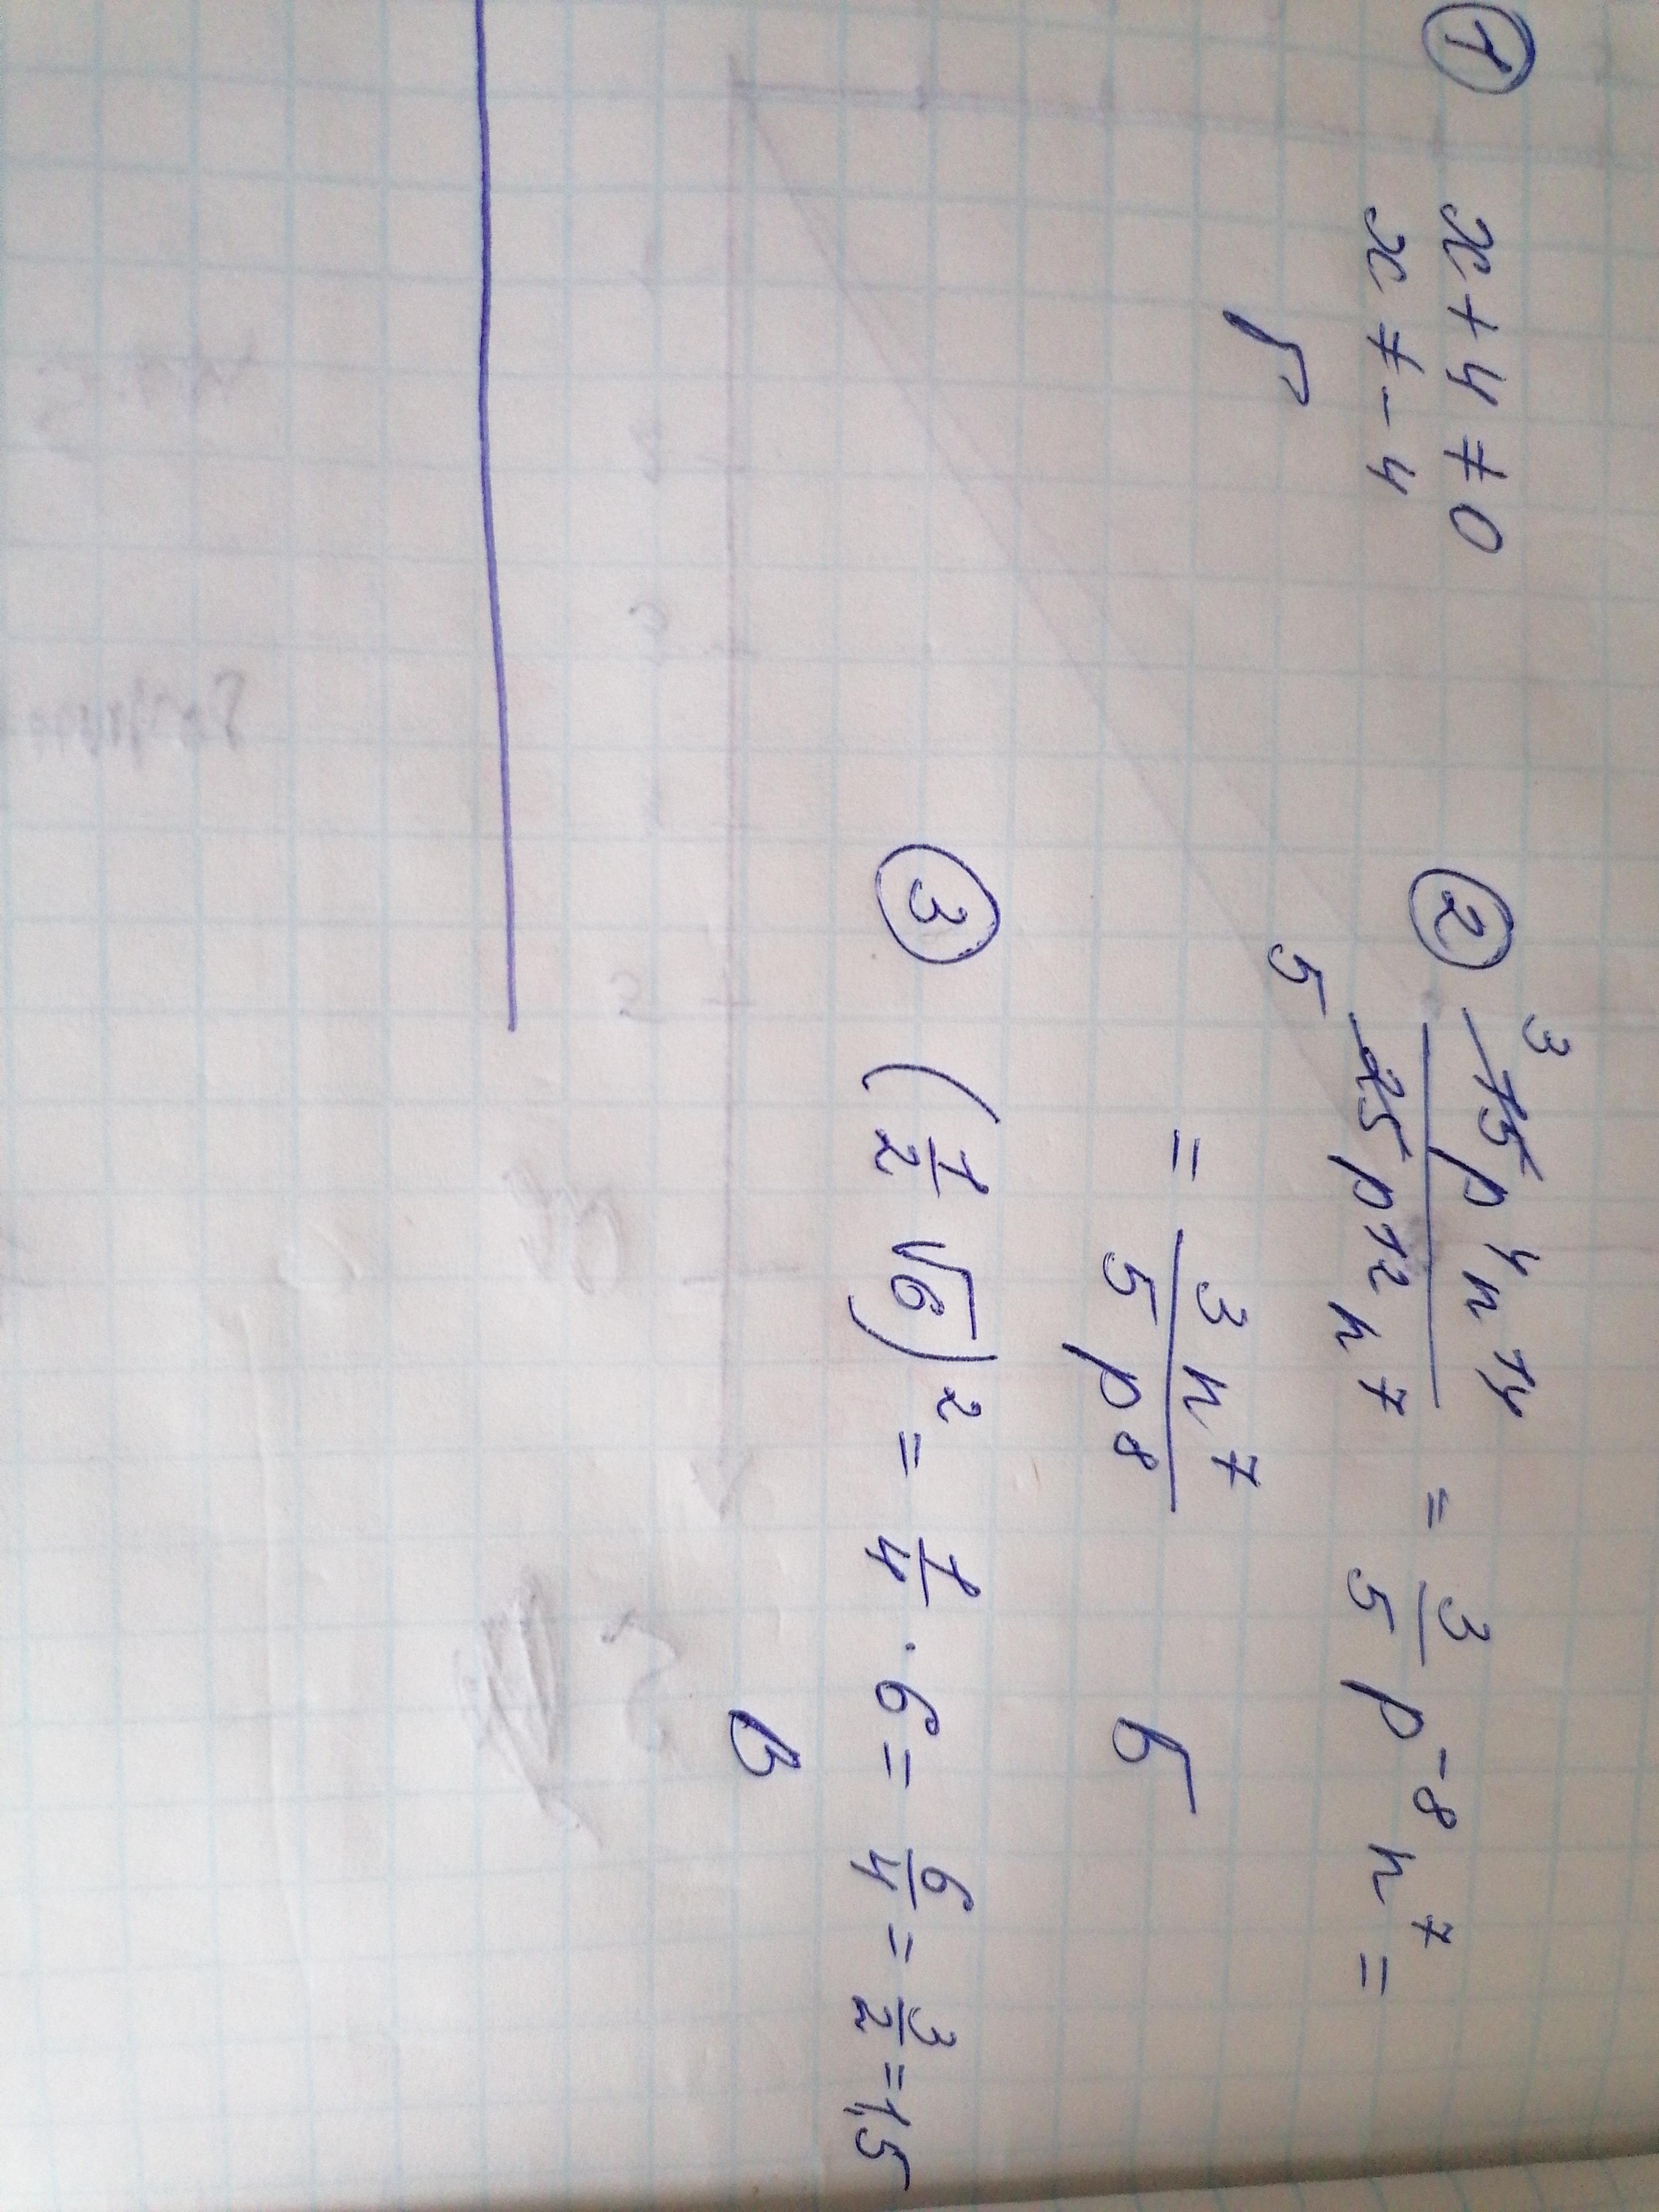 ① x + 4 ≠ 0
x ≠ - 4
Г
② ³15p⁴n¹⁴ / ⁵25p¹²n⁷ = 3/5 p⁻⁸n⁷ =
= 3n⁷ / 5p⁸
Б
③ (1/2 √6)² = 1/4 · 6 = 6/4 = 3/2 = 1,5
В